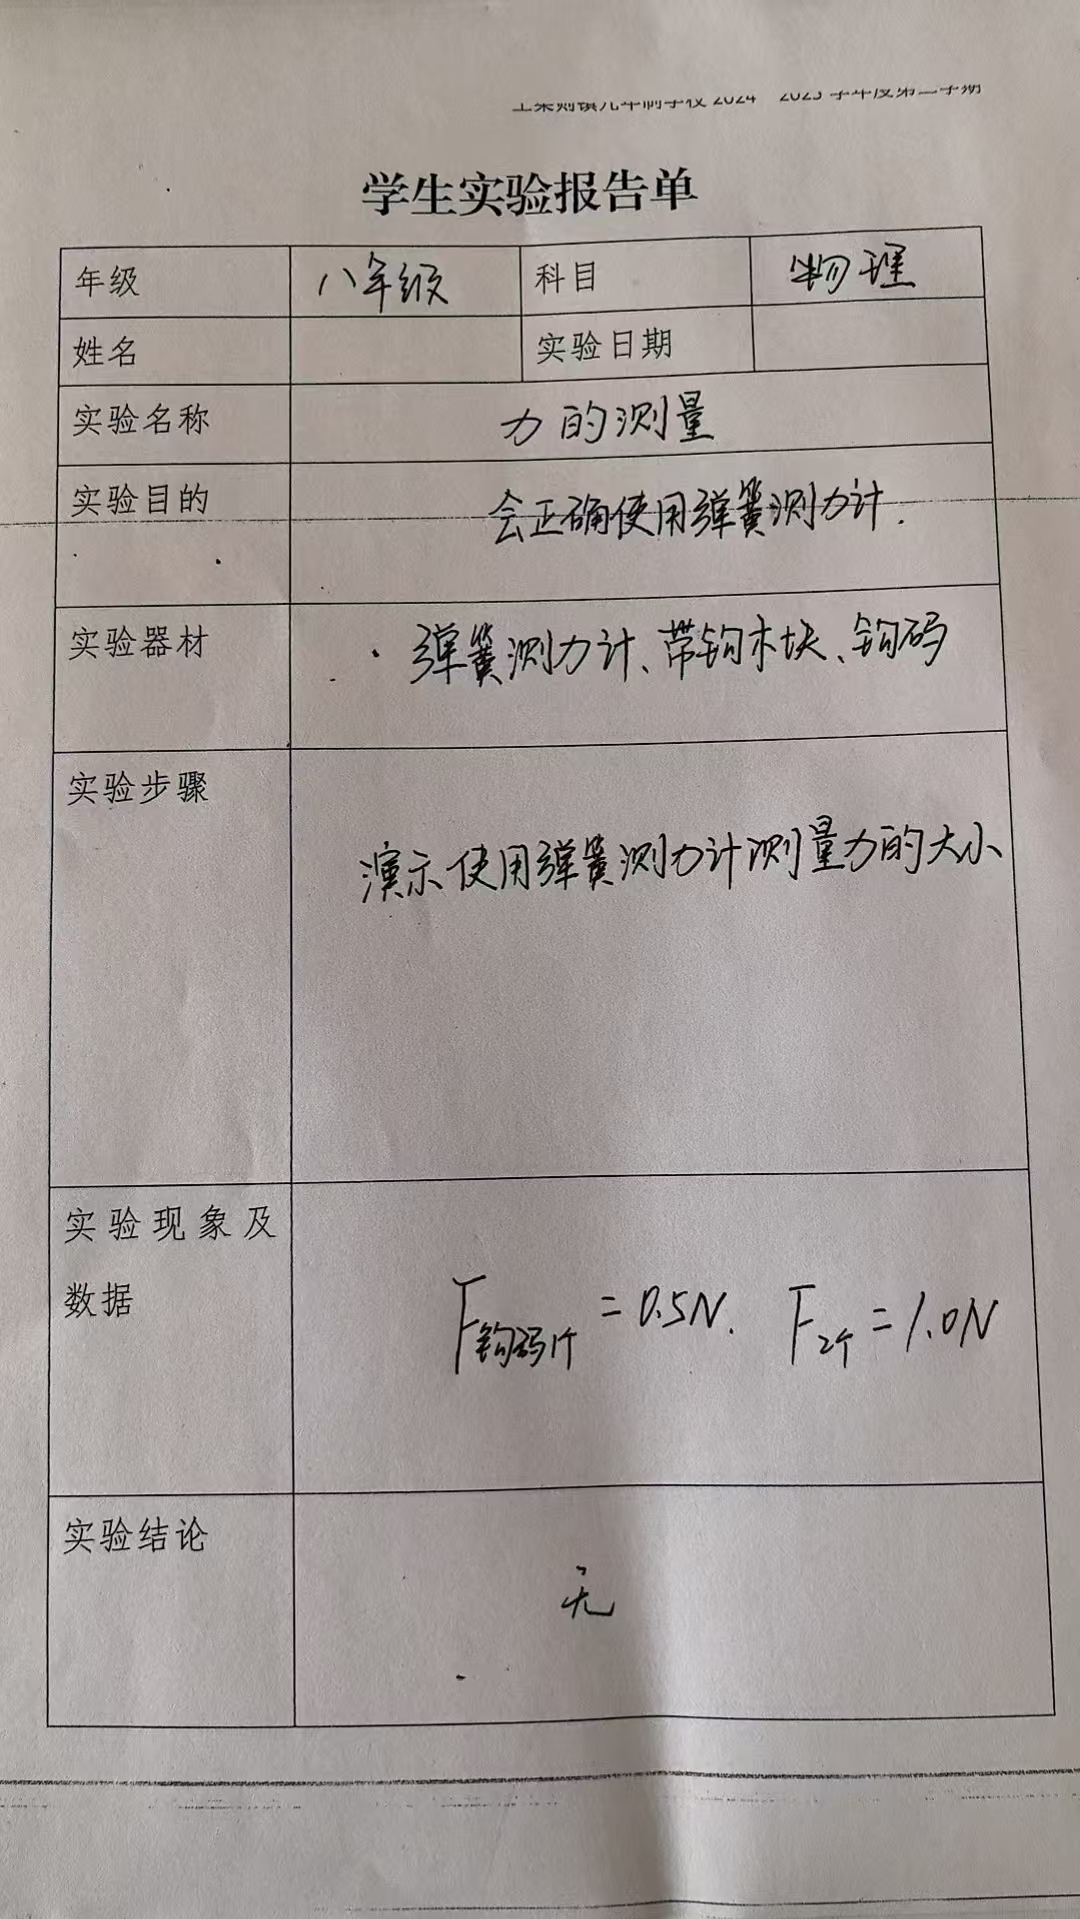 镇九年制学校 2024 2025 学年度第二学期
学生实验报告单
年级 八年级 科目 物理
姓名 实验日期
实验名称 力的测量
实验目的 会正确使用弹簧测力计.
实验器材 弹簧测力计、带钩木块、钩码
实验步骤 演示使用弹簧测力计测量力的大小
实验现象及
数据 F钩码1个 = 0.5N. F2个 = 1.0N
实验结论 无